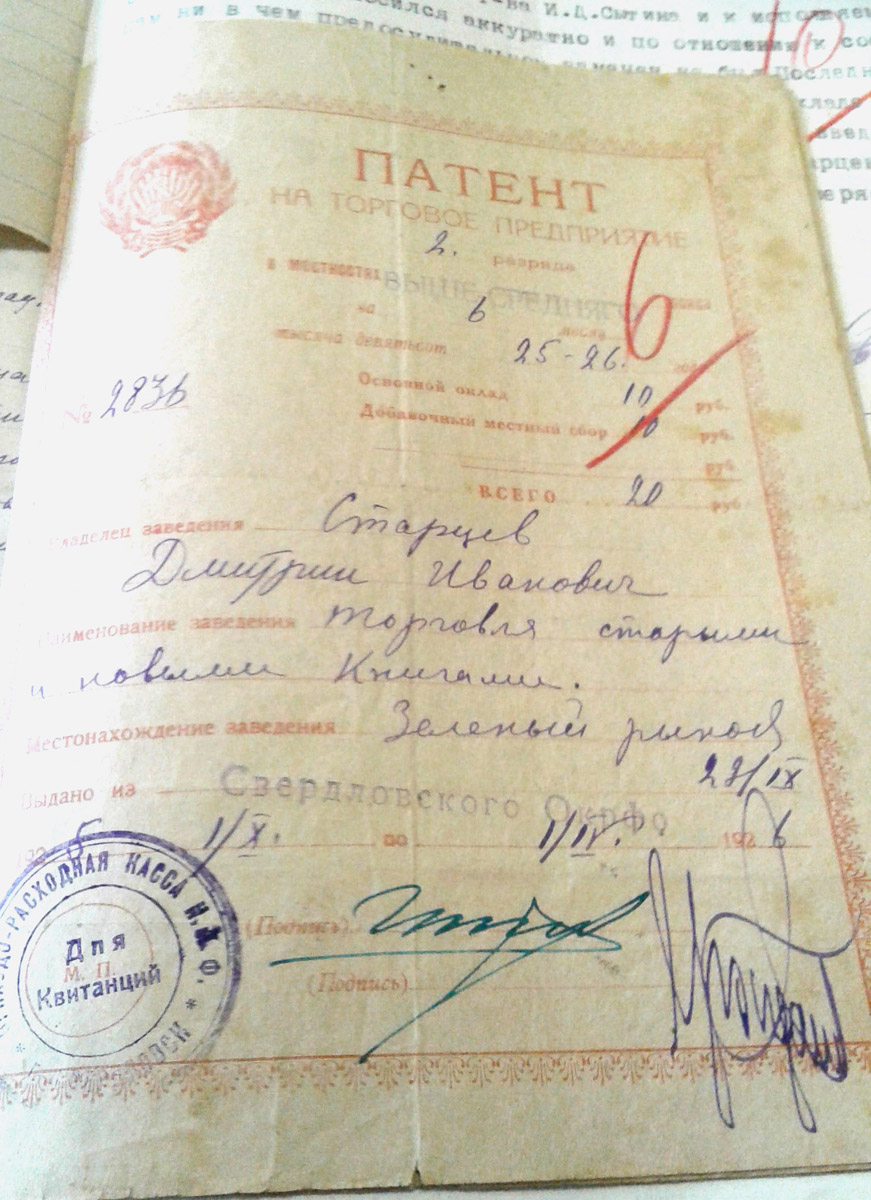 И.Д.Сытина и к исполнен
ни в чем
аккуратно и по отношения к со
был Последн
10
ПАТЕНТ
НА ТОРГОВОЕ ПРЕДПРИЯТИЕ
2. разряда
в местностях ВЫШЕ-СРЕДНЯГО пояса
6
на 6 месяц
тысяча девятьсот 25-26. год
№ 2836
Основной оклад 10 руб.
Добавочный местный сбор 10 руб.
руб.
ВСЕГО 20 руб
Владелец заведения Старцев
Дмитрий Иванович
Наименование заведения торговля старыми
и новыми Книгами.
Местонахождение заведения Зеленый рынок
Выдано из Свердловского Окрфо
1925 1/X. по 1/IV. 1926
РАСХОДНАЯ КАССА Н.К.Ф.
Для
М. П.
Квитанций
(Подпись)
(Подпись)